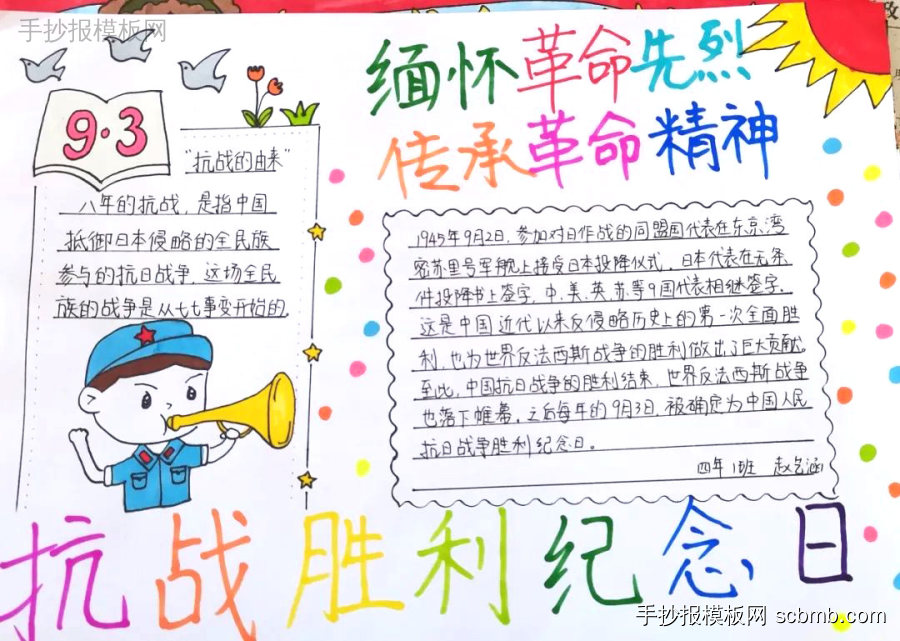 手抄报模板网
缅怀革命先烈
传承革命精神
9·3
"抗战的由来"
八年的抗战,是指中国
抵御日本侵略的全民族
参与的抗日战争,这场全民
族的战争是从七七事变开始的.
1945年9月2日,参加对日作战的同盟国代表在东京湾
密苏里号军舰上接受日本投降仪式,日本代表在无条
件投降书上签字,中.美.英.苏.等9国代表相继签字.
这是中国近代以来反侵略历史上的第一次全面胜
利,也为世界反法西斯战争的胜利做出了巨大贡献.
至此,中国抗日战争的胜利结束,世界反法西斯战争
也落下帷幕.之后每年的9月3日,被确定为中国人民
抗日战争胜利纪念日。
四年1班 赵艺涵
抗战胜利纪念日
手抄报模板网 scbmb.com